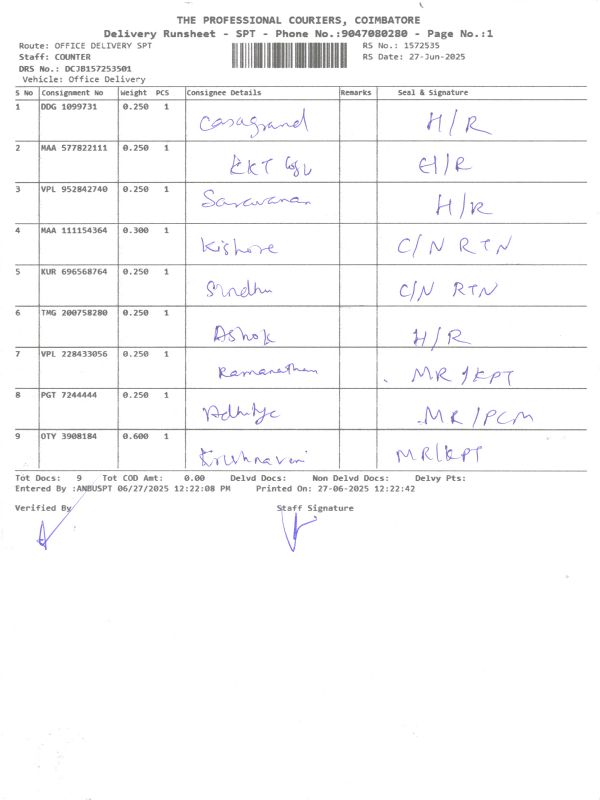 THE PROFESSIONAL COURIERS, COIMBATORE
Delivery Runsheet - SPT - Phone No.:9047080280 - Page No.:1
Route: OFFICE DELIVERY SPT RS No.: 1572535
Staff: COUNTER RS Date: 27-Jun-2025
DRS No.: DCJB157253501
Vehicle: Office Delivery
S No Consignment No Weight PCS Consignee Details Remarks Seal & Signature
1 DDG 1099731 0.250 1 Casagrand H/R
2 MAA 577822111 0.250 1 EKT H/R
3 VPL 952842740 0.250 1 Saravanan H/R
4 MAA 111154364 0.300 1 Kishore C/N RTN
5 KUR 696568764 0.250 1 Sindhu C/N RTN
6 TMG 200758280 0.250 1 Ashok H/R
7 VPL 228433056 0.250 1 Ramanathan MR/KPT
8 PGT 7244444 0.250 1 MR/PCM
9 OTY 3908184 0.600 1 MR/KPT
Tot Docs: 9 Tot COD Amt: 0.00 Delvd Docs: Non Delvd Docs: Delvy Pts:
Entered By :ANBUSPT 06/27/2025 12:22:08 PM Printed On: 27-06-2025 12:22:42
Verified By Staff Signature